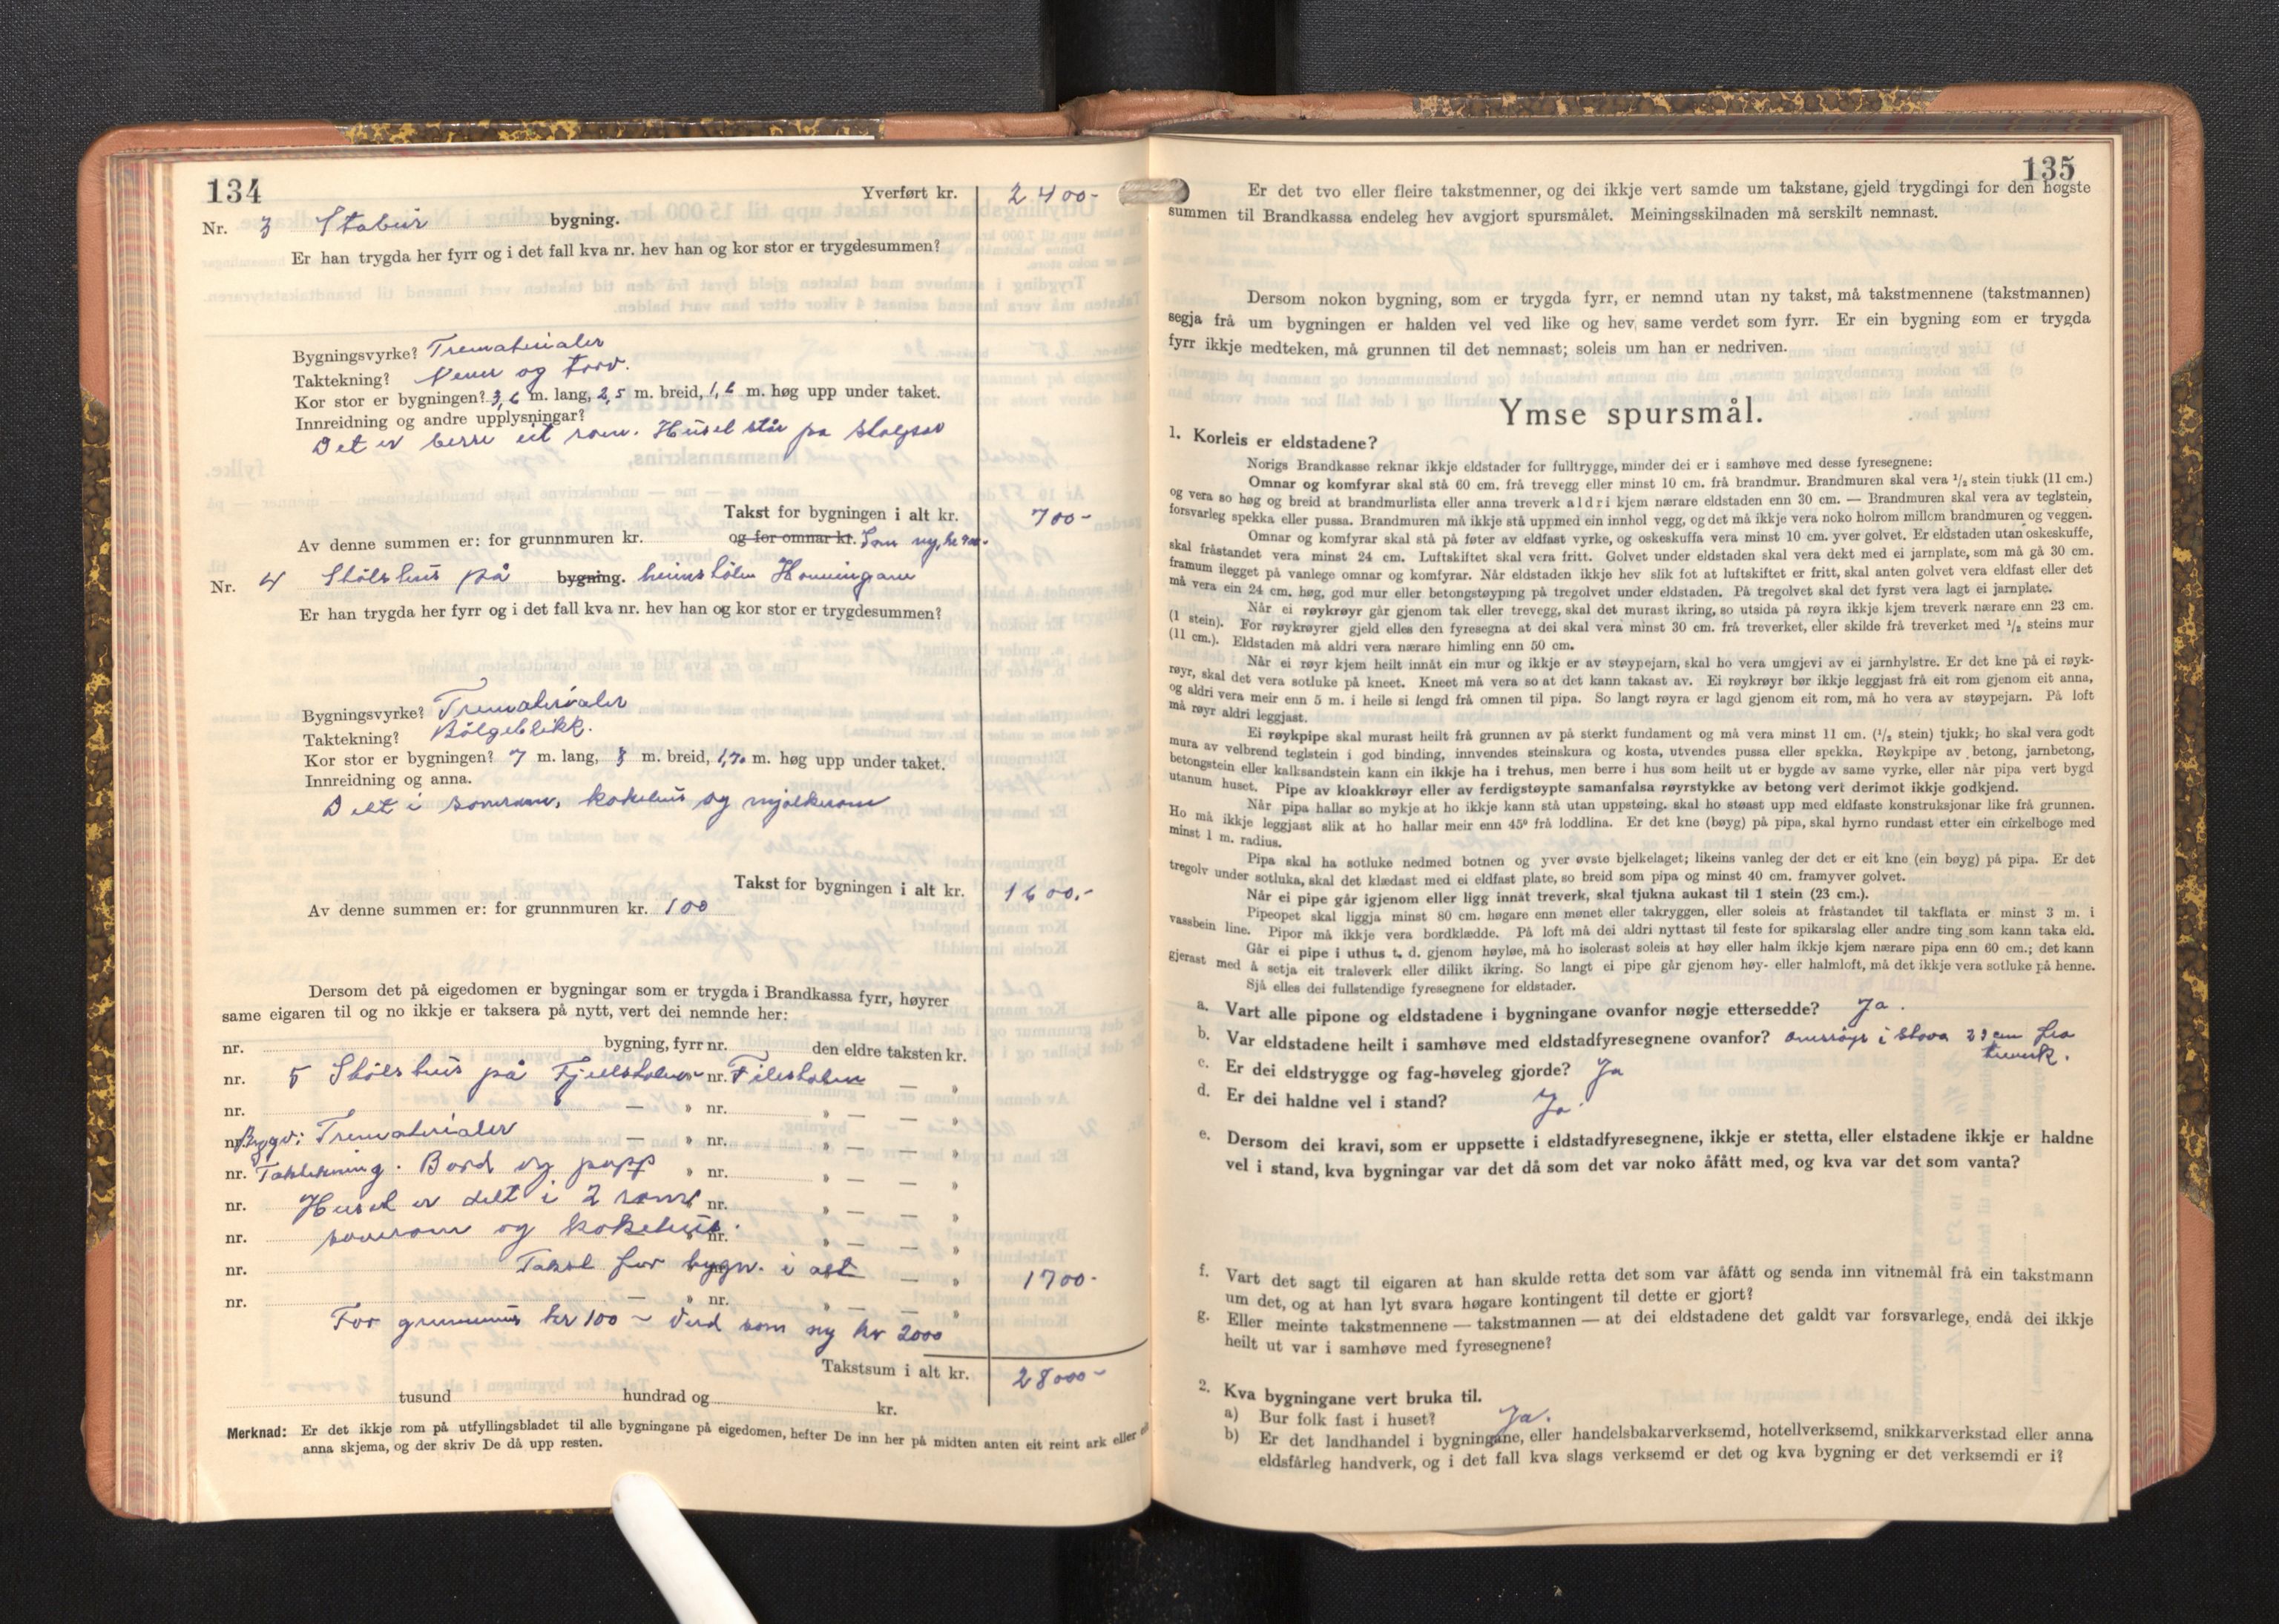 134
Yverført kr. 2400-
Nr. 3 Stabur bygning.
Er han trygda her fyrr og i det fall kva nr. hev han og kor stor er trygdesummen?
Bygningsvyrke? Trematerialer
Taktekning? Never og torv.
Kor stor er bygningen? 3,6 m. lang, 2,5 m. breid, 1,6 m. høg upp under taket.
Innreidning og andre upplysningar?
Det er berre eit rom. Huset står på stolpar
Takst for bygningen i alt kr. 700-
Av denne summen er: for grunnmuren kr. og for omnar kr. Som ny, kr
Nr. 4 Stølshus på bygning. heimstølen
Er han trygda her fyrr og i det fall kva nr. hev han og kor stor er trygdesummen?
Bygningsvyrke? Trematerialer
Taktekning? Bölgeblikk.
Kor stor er bygningen? 7 m. lang, 3 m. breid, 1,70 m. høg upp under taket.
Innreidning og anna.
Delt i soverom, kokehus og mjølkerom
Takst for bygningen i alt kr. 1600.-
Av denne summen er: for grunnmuren kr. 100
Dersom det på eigedomen er bygningar som er trygda i Brandkassa fyrr, høyrer
same eigaren til og no ikkje er taksera på nytt, vert dei nemnde her:
nr. bygning, fyrr nr. den eldre taksten kr.
nr. 5 Stølshus på Fjellstølen nr. — »
nr. — » nr. » — — »
nr. Byggv: Trematerialer — » nr. » — — »
nr. Taktekning. Bord og papp » nr. » — — »
nr. Huset er delt i 2 rom nr. » — — »
nr. soverom og kokehus. nr. » — — »
nr. Takst for bygn. i alt — » 1700-
nr. — » nr. » — — »
For grunnmur kr 100 - Verd som ny kr 2000
Takstsum i alt kr. 28000-
tusund hundrad og kr.
Merknad: Er det ikkje rom på utfyllingsbladet til alle bygningane på eigedomen, hefter De inn her på midten anten eit reint ark eller
anna skjema, og der skriv De då upp resten.
135
Er det tvo eller fleire takstmenner, og dei ikkje vert samde um takstane, gjeld trygdingi for den høgste
summen til Brandkassa endeleg hev avgjort spursmålet. Meiningsskilnaden må serskilt nemnast.
Dersom nokon bygning, som er trygda fyrr, er nemnd utan ny takst, må takstmennene (takstmannen)
segja frå um bygningen er halden vel ved like og hev same verdet som fyrr. Er ein bygning som er trygda
fyrr ikkje medteken, må grunnen til det nemnast; soleis um han er nedriven.
Ymse spursmål.
1. Korleis er eldstadene?
Norigs Brandkasse reknar ikkje eldstader for fulltrygge, minder dei er i samhøve med desse fyresegnene:
Omnar og komfyrar skal stå 60 cm. frå trevegg eller minst 10 cm. frå brandmur. Brandmuren skal vera 1/2 stein tjukk (11 cm.)
og vera so høg og breid at brandmurlista eller anna treverk aldri kjem nærare eldstaden enn 30 cm. — Brandmuren skal vera av teglstein,
forsvarleg spekka eller pussa. Brandmuren må ikkje stå uppmed ein innhol vegg, og det må ikkje vera noko holrom millom brandmuren og veggen.
Omnar og komfyrar skal stå på føter av eldfast vyrke, og oskeskuffa vera minst 10 cm. yver golvet. Er eldstaden utan oskeskuffe,
skal fråstandet vera minst 24 cm. Luftskiftet skal vera fritt. Golvet under eldstaden skal vera dekt med ei jarnplate, som må gå 30 cm.
framum ilegget på vanlege omnar og komfyrar. Når eldstaden ikkje hev slik fot at luftskiftet er fritt, skal anten golvet vera eldfast eller det
må vera ein 24 cm. høg, god mur eller betongstøyping på tregolvet under eldstaden. På tregolvet skal det fyrst vera lagt ei jarnplate.
Når ei røykrøyr går gjenom tak eller trevegg, skal det murast ikring, so utsida på røyra ikkje kjem treverk nærare enn 23 cm.
(1 stein). For røykrøyrer gjeld elles den fyresegna at dei skal vera minst 30 cm. frå treverket, eller skilde frå treverket med 1/2 steins mur
(11 cm.). Eldstaden må aldri vera nærare himling enn 50 cm.
Når ei røyr kjem heilt innåt ein mur og ikkje er av støypejarn, skal ho vera umgjevi av ei jarnhylstre. Er det kne på ei røyk-
røyr, skal det vera sotluke på kneet. Kneet må vera so at det kann takast av. Ei røykrøyr bør ikkje leggjast frå eit rom gjenom eit anna,
og aldri vera meir enn 5 m. i heile si lengd frå omnen til pipa. So langt røyra er lagd gjenom eit rom, må ho vera av støypejarn. På loft
må røyr aldri leggjast.
Ei røykpipe skal murast heilt frå grunnen av på sterkt fundament og må vera minst 11 cm. (1/2 stein) tjukk; ho skal vera godt
mura av velbrend teglstein i god binding, innvendes steinskura og kosta, utvendes pussa eller spekka. Røykpipe av betong, jarnbetong,
betongstein eller kalksandstein kann ein ikkje ha i trehus, men berre i hus som heilt ut er bygde av same vyrke, eller når pipa vert bygd
utanum huset. Pipe av kloakkrøyr eller av ferdigstøypte samanfalsa røyrstykke av betong vert derimot ikkje godkjend.
Når pipa hallar so mykje at ho ikkje kann stå utan uppstøing, skal ho støast upp med eldfaste konstruksjonar like frå grunnen.
Ho må ikkje leggjast slik at ho hallar meir enn 45° frå loddlina. Er det kne (bøyg) på pipa, skal hyrno rundast etter ein cirkelboge med
minst 1 m. radius.
Pipa skal ha sotluke nedmed botnen og yver øvste bjelkelaget; likeins vanleg der det er eit kne (ein bøyg) på pipa. Er det
tregolv under sotluka, skal det klædast med ei eldfast plate, so breid som pipa og minst 40 cm. framyver golvet.
Når ei pipe går igjenom eller ligg innåt treverk, skal tjukna aukast til 1 stein (23 cm.).
Pipeopet skal liggja minst 80 cm. høgare enn mønet eller takryggen, eller soleis at fråstandet til takflata er minst 3 m. i
vassbein line. Pipor må ikkje vera bordklædde. På loft må dei aldri nyttast til feste for spikarslag eller andre ting som kann taka eld.
Går ei pipe i uthus t. d. gjenom høyløe, må ho isolerast soleis at høy eller halm ikkje kjem nærare pipa enn 60 cm.; det kann
gjerast med å setja eit traleverk eller dilikt ikring. So langt ei pipe går gjenom høy- eller halmloft, må det ikkje vera sotluke på henne.
Sjå elles dei fullstendige fyresegnene for eldstader.
a. Vart alle pipone og eldstadene i bygningane ovanfor nøgje ettersedde? Ja.
b. Var eldstadene heilt i samhøve med eldstadfyresegnene ovanfor? omnsrøyr i stova 23 cm fra
treverk.
c. Er dei eldstrygge og fag-høveleg gjorde? Ja
d. Er dei haldne vel i stand? Ja
e. Dersom dei kravi, som er uppsette i eldstadfyresegnene, ikkje er stetta, eller elstadene ikkje er haldne
vel i stand, kva bygningar var det då som det var noko åfått med, og kva var det som vanta?
f. Vart det sagt til eigaren at han skulde retta det som var åfått og senda inn vitnemål frå ein takstmann
um det, og at han lyt svara høgare kontingent til dette er gjort?
g. Eller meinte takstmennene — takstmannen — at dei eldstadene det galdt var forsvarlege, endå dei ikkje
heilt ut var i samhøve med fyresegnene?
2. Kva bygningane vert bruka til.
a) Bur folk fast i huset? Ja.
b) Er det landhandel i bygningane, eller handelsbakarverksemd, hotellverksemd, snikkarverkstad eller anna
eldsfårleg handverk, og i det fall kva slags verksemd er det og kva bygning er det verksemdi er i?